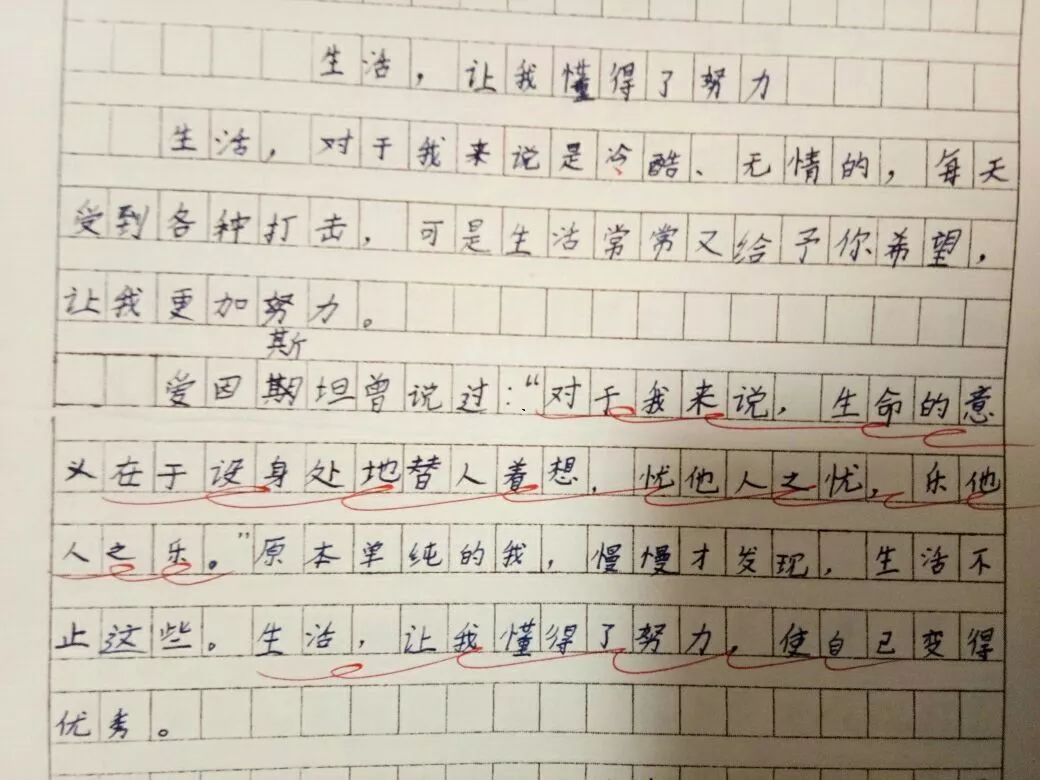 生活，让我懂得了努力
生活，对于我来说是冷酷、无情的，每天
受到各种打击，可是生活常常又给予你希望，
让我更加努力。
斯
爱因期坦曾说过：“对于我来说，生命的意
义在于设身处地替人着想，忧他人之忧，乐他
人之乐。”原本单纯的我，慢慢才发现，生活不
止这些。生活，让我懂得了努力，使自己变得
优秀。